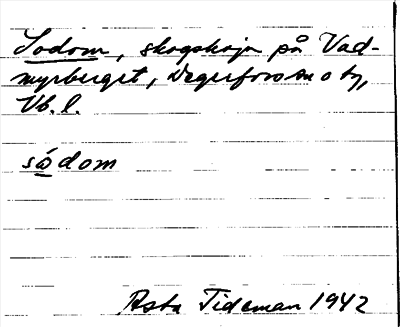 Sodom, skogskoja på Vad-
myrberget, Degerfors sn o ty,
Vb. l.
södom
Asta Tideman 1942